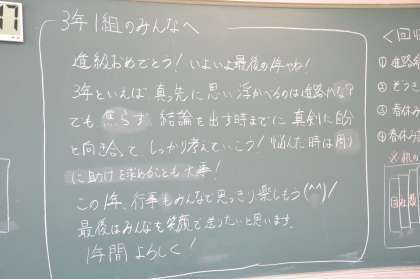 3年1組のみんなへ
進級おめでとう！いよいよ最後の1年やね！
3年といえば、真先に思い浮かべるのは進路かな？
でも焦らず、結論を出す時までに真剣に自分
と向き合って しっかり考えていこう！悩んだ時は周り
に助けを求めることも大事！
この1年、行事もみんなで思っきり楽しもう(^^)！
最後はみんなを笑顔で送りたいと思います。
1年間よろしく！
＜回収
① 進路
② ぞうき
③ 春休み
④ 春休み